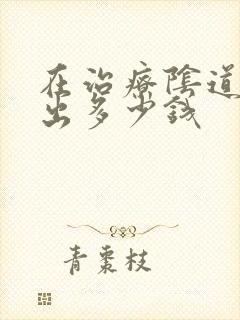 在治療陰道
出多少錢
青棗枝